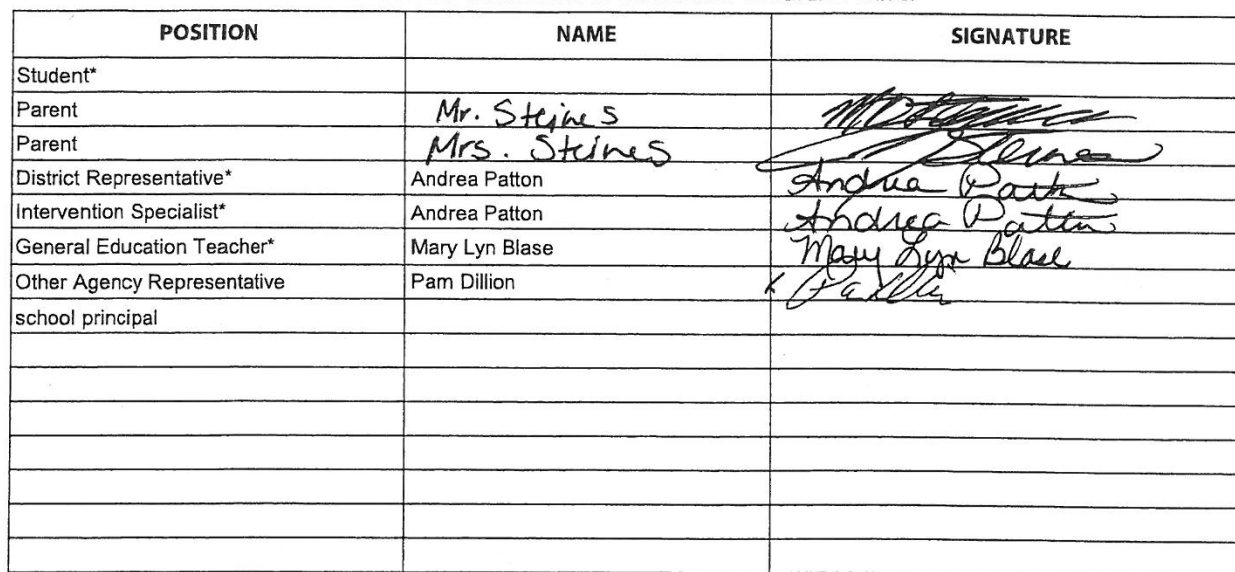 POSITION NAME SIGNATURE
Student*
Parent Mr. Steines
Parent Mrs. Steines Steines
District Representative* Andrea Patton Andrea Patton
Intervention Specialist* Andrea Patton Andrea Patton
General Education Teacher* Mary Lyn Blase Mary Lyn Blase
Other Agency Representative Pam Dillion
school principal